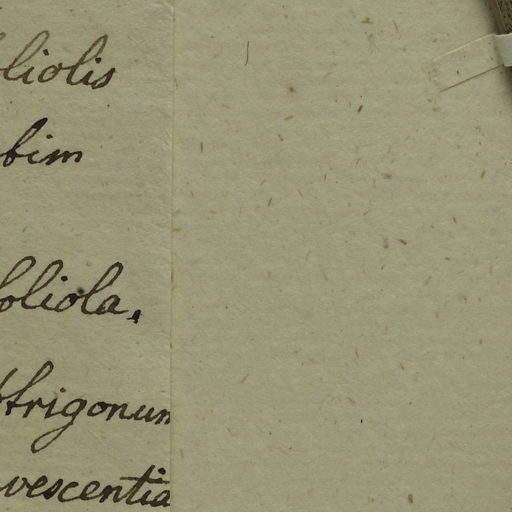 foliolis
bim
foliola.
trigonum
vescentia